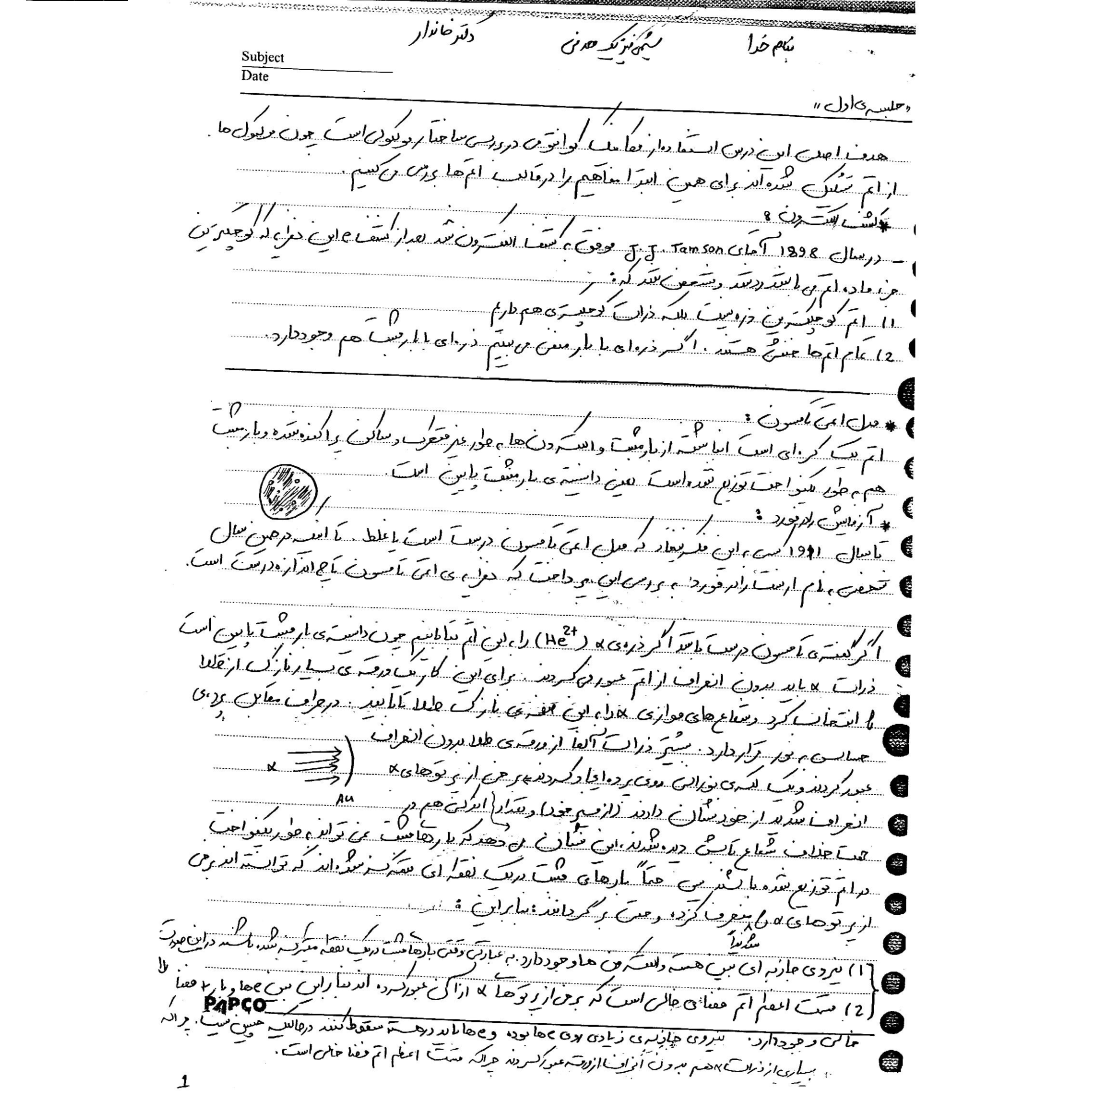 بنام خدا شیمی فیزیک معدنی دکتر خاندار
Subject
Date
«جلسه ی اول»
هدف اصلی این درس استفاده از مکانیک کوانتومی در بررسی ساختار مولکولی است چون مولکول ها
از اتم تشکیل شده اند برای همین ابتدا مفاهیم را در قالب اتم ها بررسی می کنیم.
* کشف الکترون :
– در سال 1898 آقای J.J. Tamson موفق به کشف الکترون شد بعد از کشف e این نظریه که کوچکترین
جزء ماده اتم می باشد رد شد و مشخص شد که :
1) اتم کوچکترین ذره نیست بلکه ذرات کوچکتری هم داریم
2) تمام اتم ها خنثی هستند. اگر ذره ای با بار منفی می بینیم ذره ای با بار مثبت هم وجود دارد.
* مدل اتمی تامسون :
اتم یک کره ای است انباشته از بار مثبت و الکترون ها به طور غیر متحرک و ساکن پراکنده شده و بار مثبت
هم به طور یکنواخت توزیع شده است یعنی دانسیته ی بار مثبت پایین است.
* آزمایش رادرفورد :
تا سال 1911 کسی به این فکر نیفتاد که مدل اتمی تامسون درست است یا غلط. تا اینکه در همین سال
شخصی به نام ارنست رادرفورد به بررسی این پرداخت که نظریه ی اتمی تامسون تا چه اندازه درست است.
اگر گفته ی تامسون درست باشد اگر ذره ی α (He2+) را به این اتم بتابانیم چون دانسیته ی بار مثبت پایین است
ذرات α باید بدون انحراف از اتم عبور می کردند. برای این کار یک ورقه ی بسیار نازک از طلا
را انتخاب کرد و شعاع های موازی α را به این صفحه ی نازک طلا تابانید. در طرف مقابل پرده ی
حساس به نور قرار دارد. بیشتر ذرات آلفا از ورقه ی طلا بدون انحراف
عبور کردند و یک لکه ی نورانی روی پرده ایجاد کردند، برخی از پرتوهای α
انحراف شدید از خودشان دادند (از مسیر خود) و مقدار اندکی هم در
α
Au
جهت خلاف شعاع تابش دیده شدند. این نشان می دهد که بارهای مثبت نمی تواند به طور یکنواخت
در اتم توزیع شده باشند پس حتماً بارهای مثبت در یک نقطه ای متمرکز شده اند که توانسته اند برخی
از پرتوهای α را شدیداً منحرف کرده و حتی برگردانند؛ بنابراین :
1) نیروی جاذبه ای بین هسته و الکترون ها وجود دارد. به عبارتی وقتی بارها مثبت در یک نقطه متمرکز شده باشند در این صورت
2) قسمت اعظم اتم فضای خالی است که برخی از پرتوها α از آن عبور کرده اند بنابراین بین e ها و بار + فضا
خالی وجود دارد. نیروی جاذبه ی زیادی روی e ها بوده و e ها باید در هسته سقوط کنند در حالیکه چنین نیست. چرا که
PAPCO
بسیاری از ذرات α هم بدون انحراف از ورقه عبور کردند چرا که قسمت اعظم اتم فضا خالی است.
1